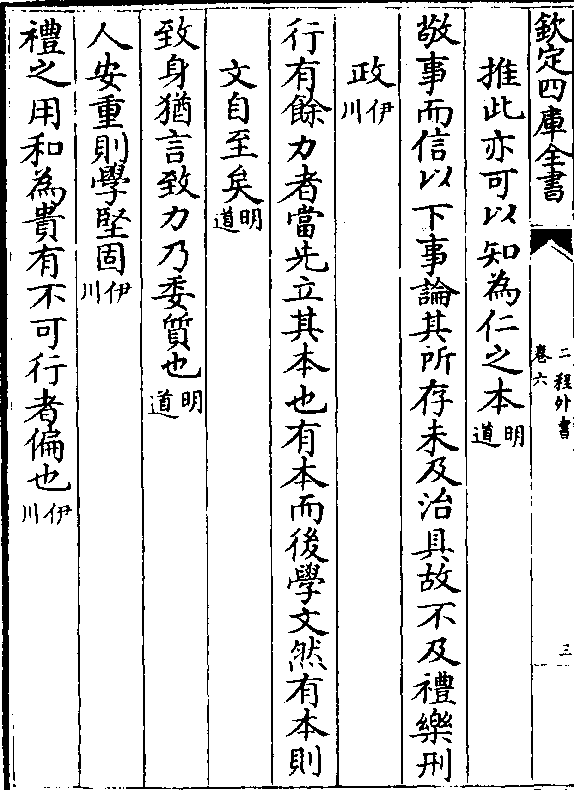 欽定四庫全書
二程外書
卷六
三
推此亦可以知為仁之本明道
敬事而信以下事論其所存未及治具故不及禮樂刑
政伊川
行有餘力者當先立其本也有本而後學文然有本則
文自至矣明道
致身猶言致力乃委質也明道
人安重則學堅固伊川
禮之用和為貴有不可行者偏也伊川